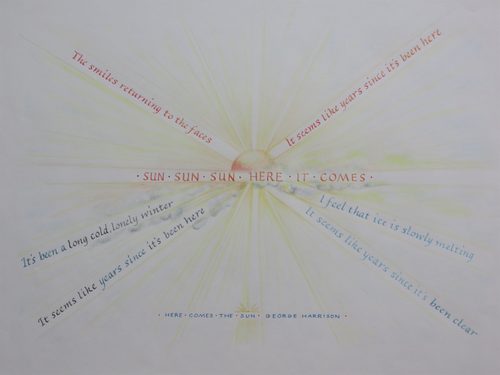 The smiles returning to the faces
It seems like years since it's been here
· SUN · SUN · SUN · HERE · IT · COMES ·
It's been a long cold, lonely winter
It seems like years since it's been here
I feel that ice is slowly melting
It seems like years since it's been clear
· HERE · COMES · THE · SUN · GEORGE HARRISON ·